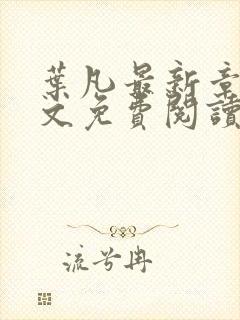 葉凡最新章
文免費閱讀
流兮冉